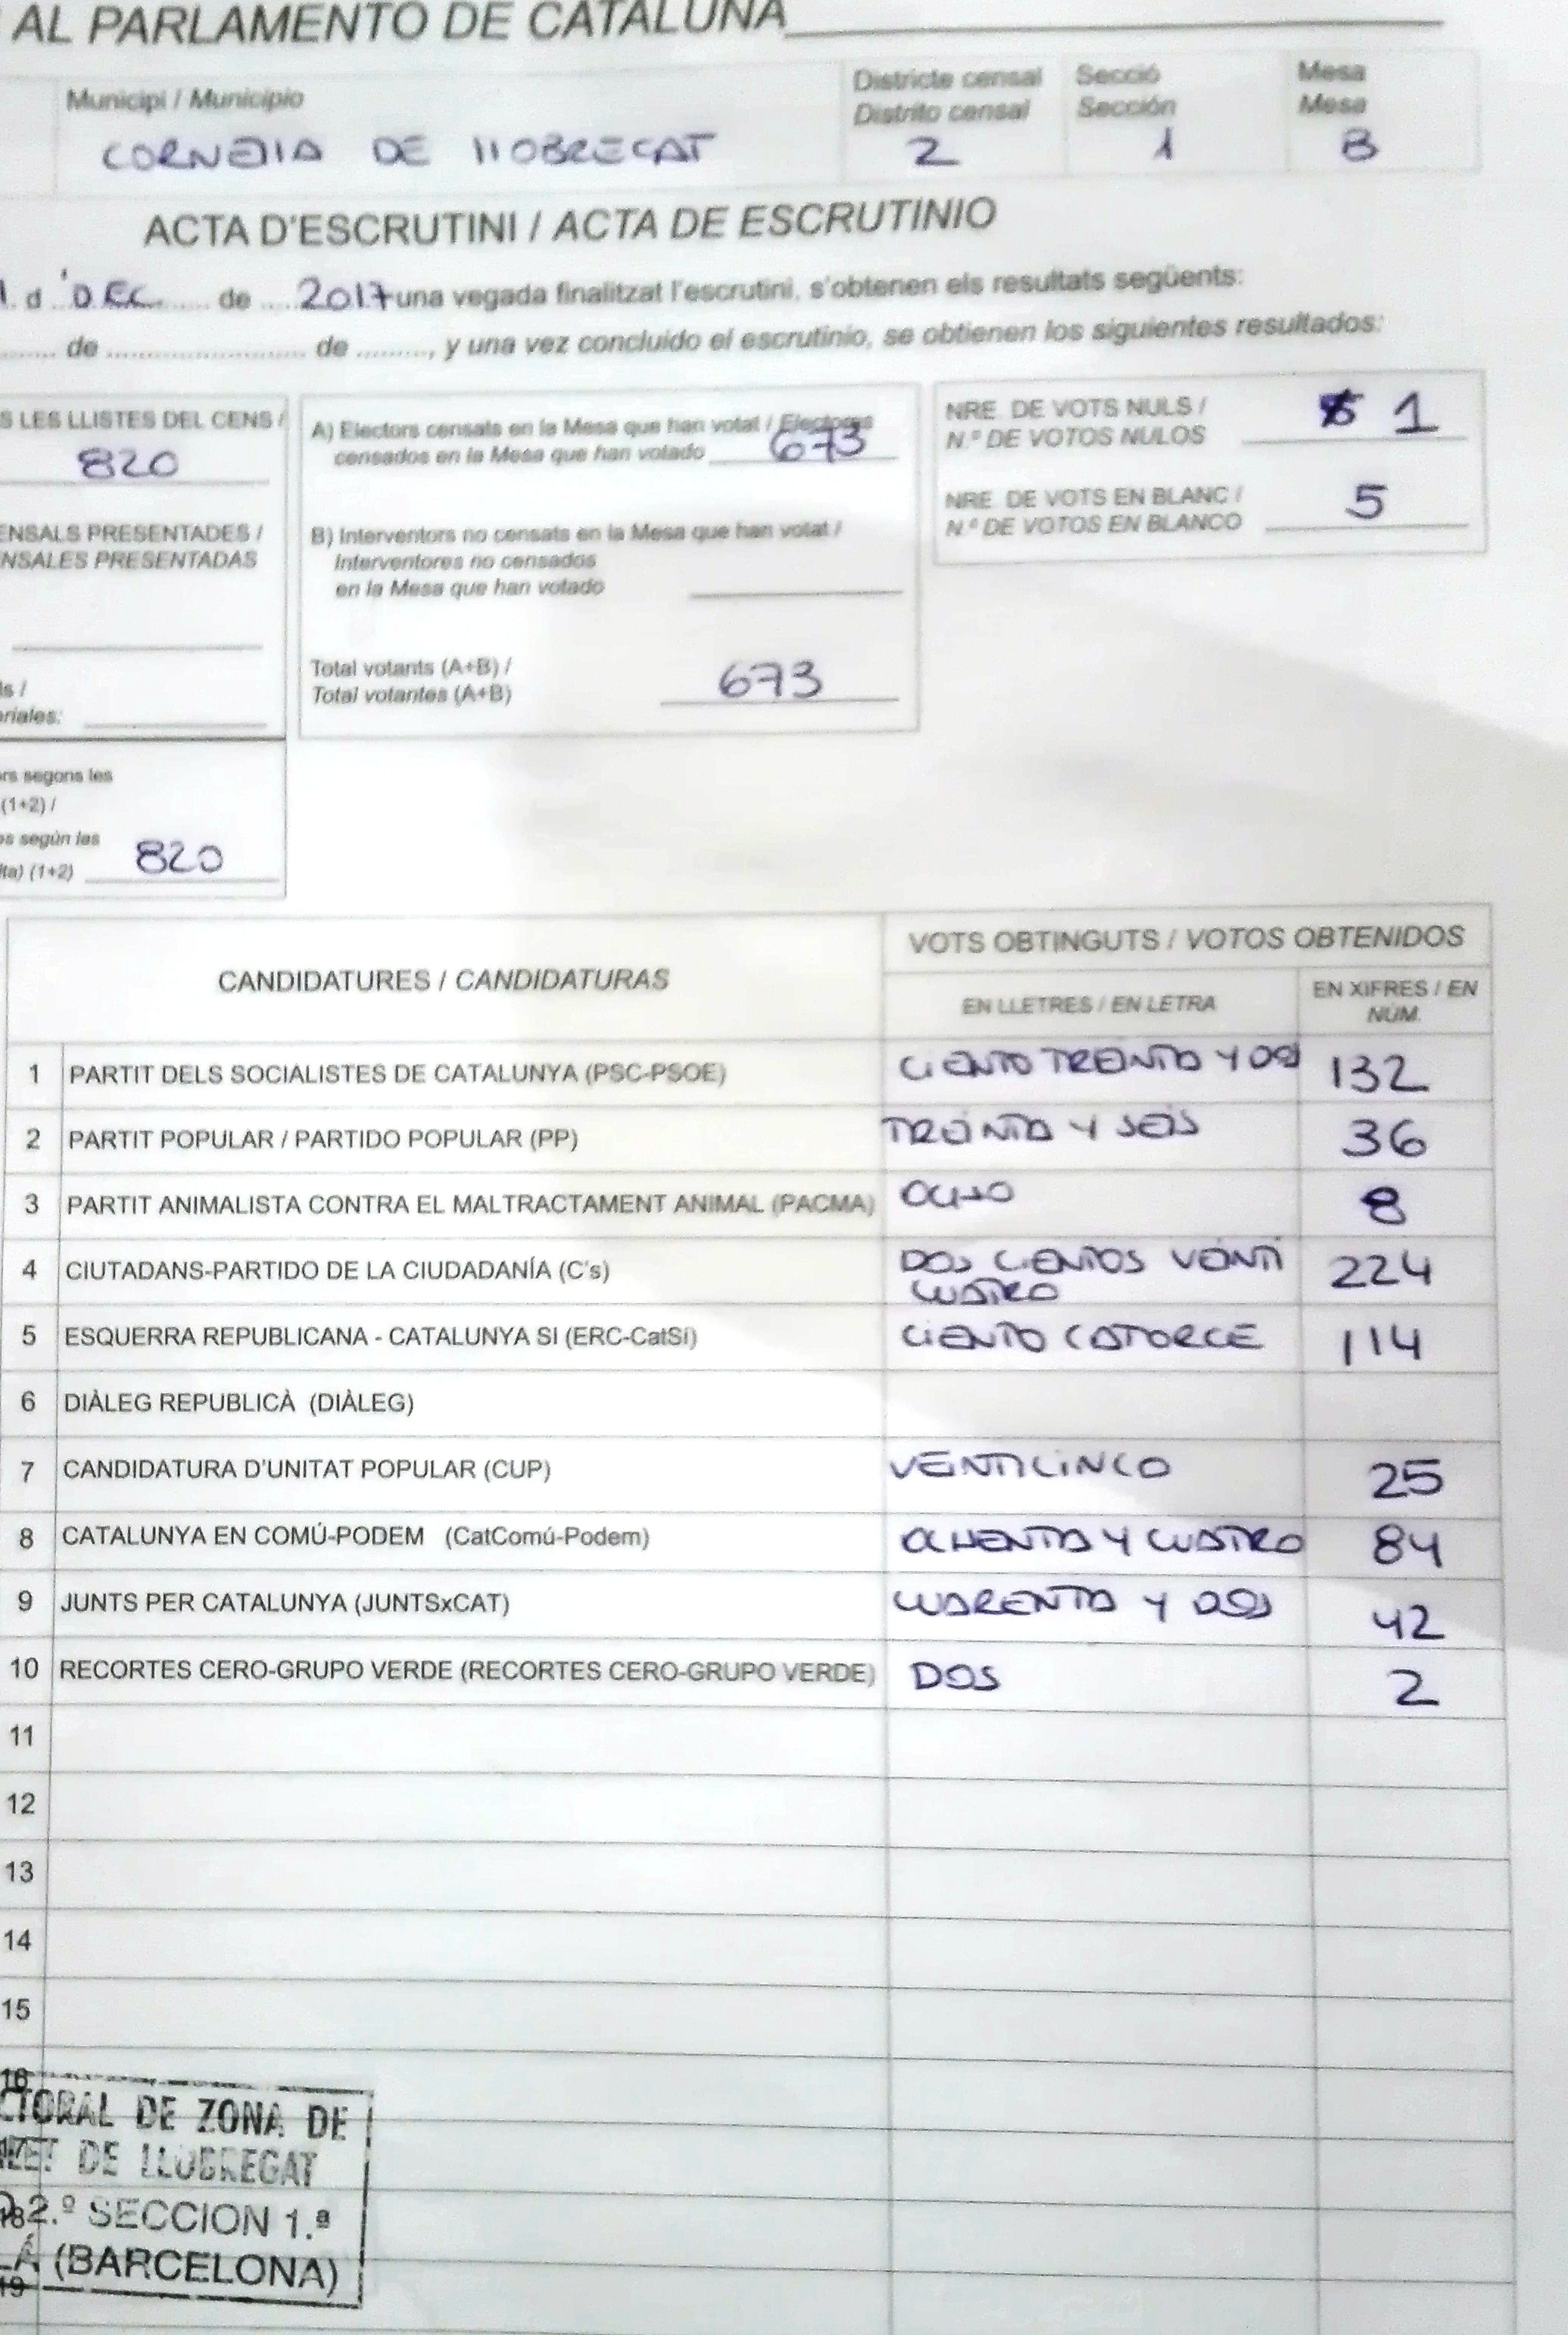 AL PARLAMENTO DE CATALUÑA
Municipi / Municipio
Districte censal
Distrito censal
Secció
Sección
Mesa
Mesa
CORNELLA DE LLOBREGAT
2
1
B
ACTA D'ESCRUTINI / ACTA DE ESCRUTINIO
1. d 'DEC. de 2017 una vegada finalitzat l'escrutini, s'obtenen els resultats següents:
de de , y una vez concluido el escrutinio, se obtienen los siguientes resultados:
S LES LLISTES DEL CENS /
820
ENSALS PRESENTADES /
NSALES PRESENTADAS
ls /
eriales:
A) Electors censats en la Mesa que han votat / Electores
censados en la Mesa que han votado 673
B) Interventors no censats en la Mesa que han votat /
Interventores no censados
en la Mesa que han votado
Total votants (A+B) /
Total votantes (A+B) 673
NRE. DE VOTS NULS /
N.º DE VOTOS NULOS 1
NRE. DE VOTS EN BLANC /
N.º DE VOTOS EN BLANCO 5
ors segons les
(1+2) /
os según las
lta) (1+2) 820
CANDIDATURES / CANDIDATURAS
VOTS OBTINGUTS / VOTOS OBTENIDOS
EN LLETRES / EN LETRA
EN XIFRES / EN
NÚM.
1 PARTIT DELS SOCIALISTES DE CATALUNYA (PSC-PSOE) CIENTO TREINTA Y DOS 132
2 PARTIT POPULAR / PARTIDO POPULAR (PP) TREINTA Y SEIS 36
3 PARTIT ANIMALISTA CONTRA EL MALTRACTAMENT ANIMAL (PACMA) OCHO 8
4 CIUTADANS-PARTIDO DE LA CIUDADANÍA (C's) DOS CIENTOS VEINTI
CUATRO 224
5 ESQUERRA REPUBLICANA - CATALUNYA SI (ERC-CatSí) CIENTO CATORCE 114
6 DIÀLEG REPUBLICÀ (DIÀLEG)
7 CANDIDATURA D'UNITAT POPULAR (CUP) VEINTICINCO 25
8 CATALUNYA EN COMÚ-PODEM (CatComú-Podem) OCHENTA Y CUATRO 84
9 JUNTS PER CATALUNYA (JUNTSxCAT) CUARENTA Y DOS 42
10 RECORTES CERO-GRUPO VERDE (RECORTES CERO-GRUPO VERDE) DOS 2
11
12
13
14
15
16
CTORAL DE ZONA DE
DE LLOBREGAT
2.º SECCION 1.ª
18
LÁ (BARCELONA)
19